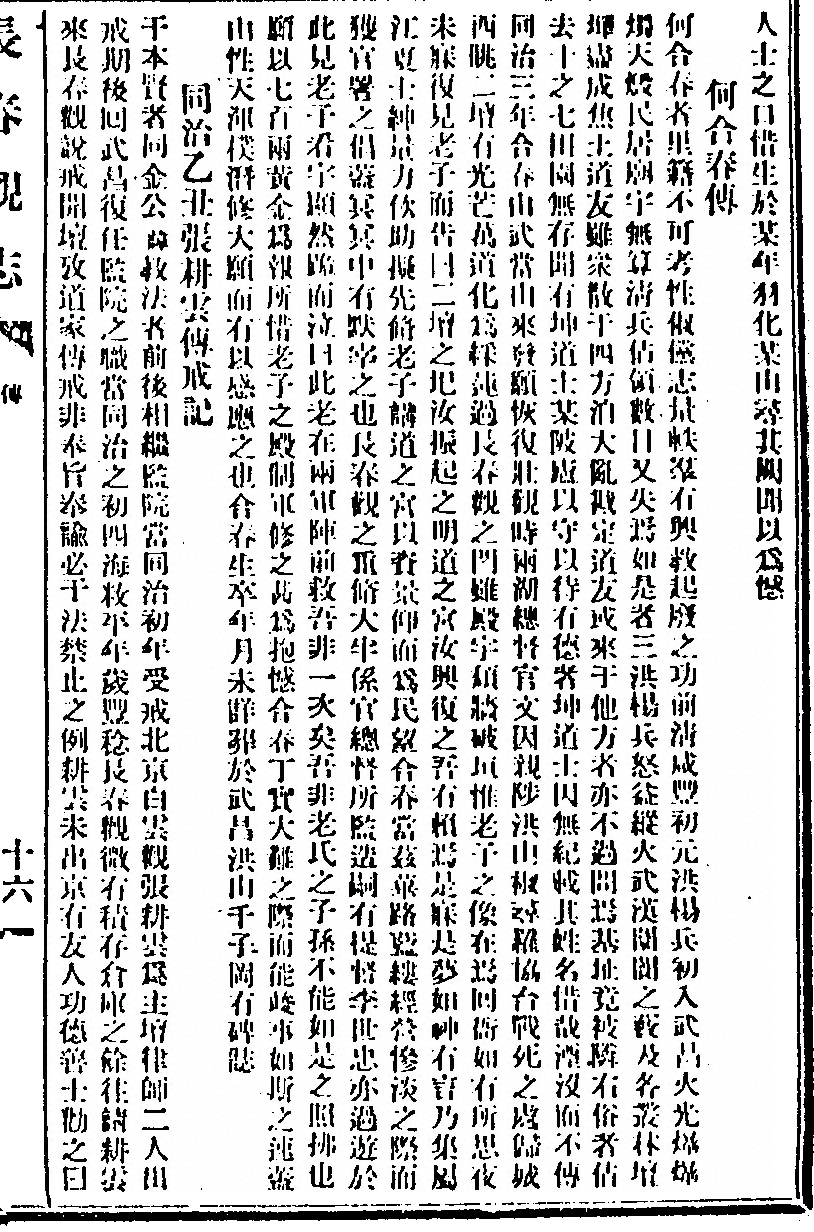 人士之口惜生於某年羽化某山尋其闕聞以爲憾
何合春傳
何合春者里籍不可考性俶儻志量軼羣有興敎起廢之功前淸咸豐初元洪楊兵初入武昌火光熾
天燬民居廟宇無算淸兵佔領數日又失焉如是者三洪楊兵怒益縱火武漢闤闠之戰及各叢林壇
盡成焦土道友雖衆散于四方洎大亂戡定道友或來于他方者亦不過問焉基址竟被隣右俗者佔
去十之七田園無存聞有坤道士某陂廬以守以待有德者坤道士因無紀載其姓名惜哉湮沒而不傳
同治三年合春由武當山來發願恢復壯觀時兩湖總督官文因親陟洪山椒尋羅協台戰死之處歸城
西眺二壇有光芒萬道化爲綵蓮過長春觀之門雖殿宇頹牆破垣惟老子之像在焉回衙如有所思夜
未寐復見老子而告曰二壇之圯汝振起之明道之宮汝興復之吾有賴焉是寐是夢如神有官乃集屬
江夏士紳量力佽助擬先脩老子闡道之宮以資景仰而爲民望合春當茲篳路藍縷經營慘淡之際而
獲官署之倡蓋冥冥中有默宰之也長春觀之重脩大半係官總督所監造嗣有提督李世忠亦過遊於
此見老子眉宇顯然跪而泣曰此老在兩軍陣前救吾非一次矣吾非老氏之子孫不能如是之照拂也
願以七百兩黃金爲報所惜老子之殿個軍修之甚爲抱憾合春丁實大難之際而能竣事如斯之速蓋
由性天渾樸潛修大願而有以感應之也合春生卒年月未詳葬於武昌洪山千子岡有碑誌
同治乙丑張耕雲傳戒記
于本賢者同金公 敎法者前後相繼監院當同治初年受戒北京白雲觀張耕雲爲主壇律師二人出
戒期後回武昌復任監院之職當同治之初四海敉平年歲豐稔長春觀微有積存倉庫之餘往請耕雲
來長春觀說戒開壇攷道家傳戒非奉旨奉諭必干法禁止之例耕雲未出京有友人功德善士勸之曰
長春觀志
傳
十六